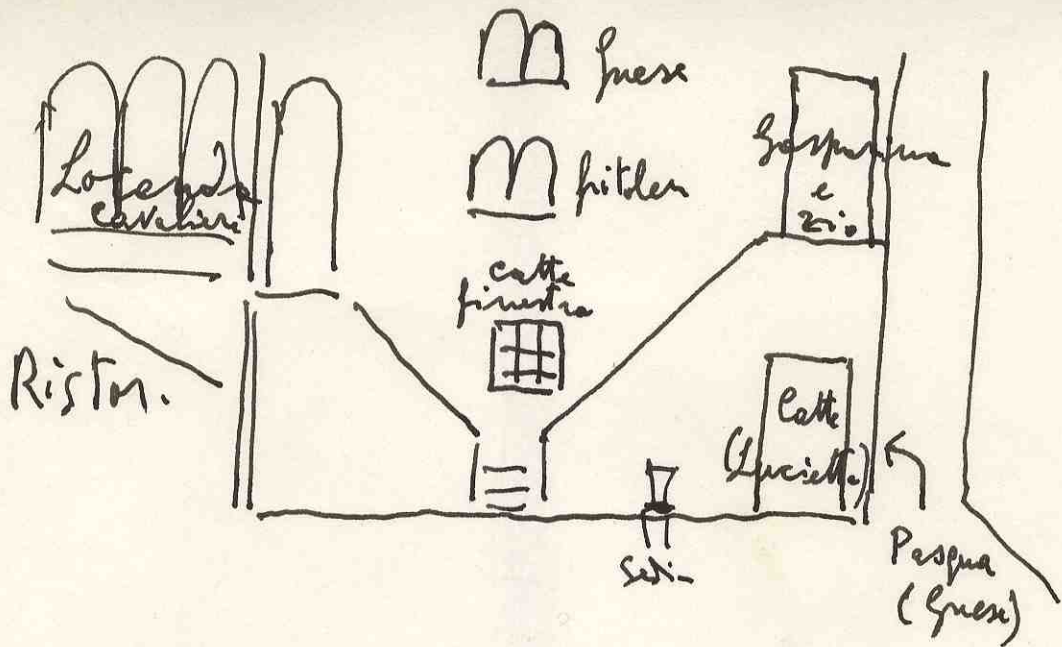 Locanda
Cavalieri
Ristor.
Gnese
fritolera
catte
finestra
Gasparina
e
zio
Catte
(Lucietta)
sedia
Pasqua
(Gnese)